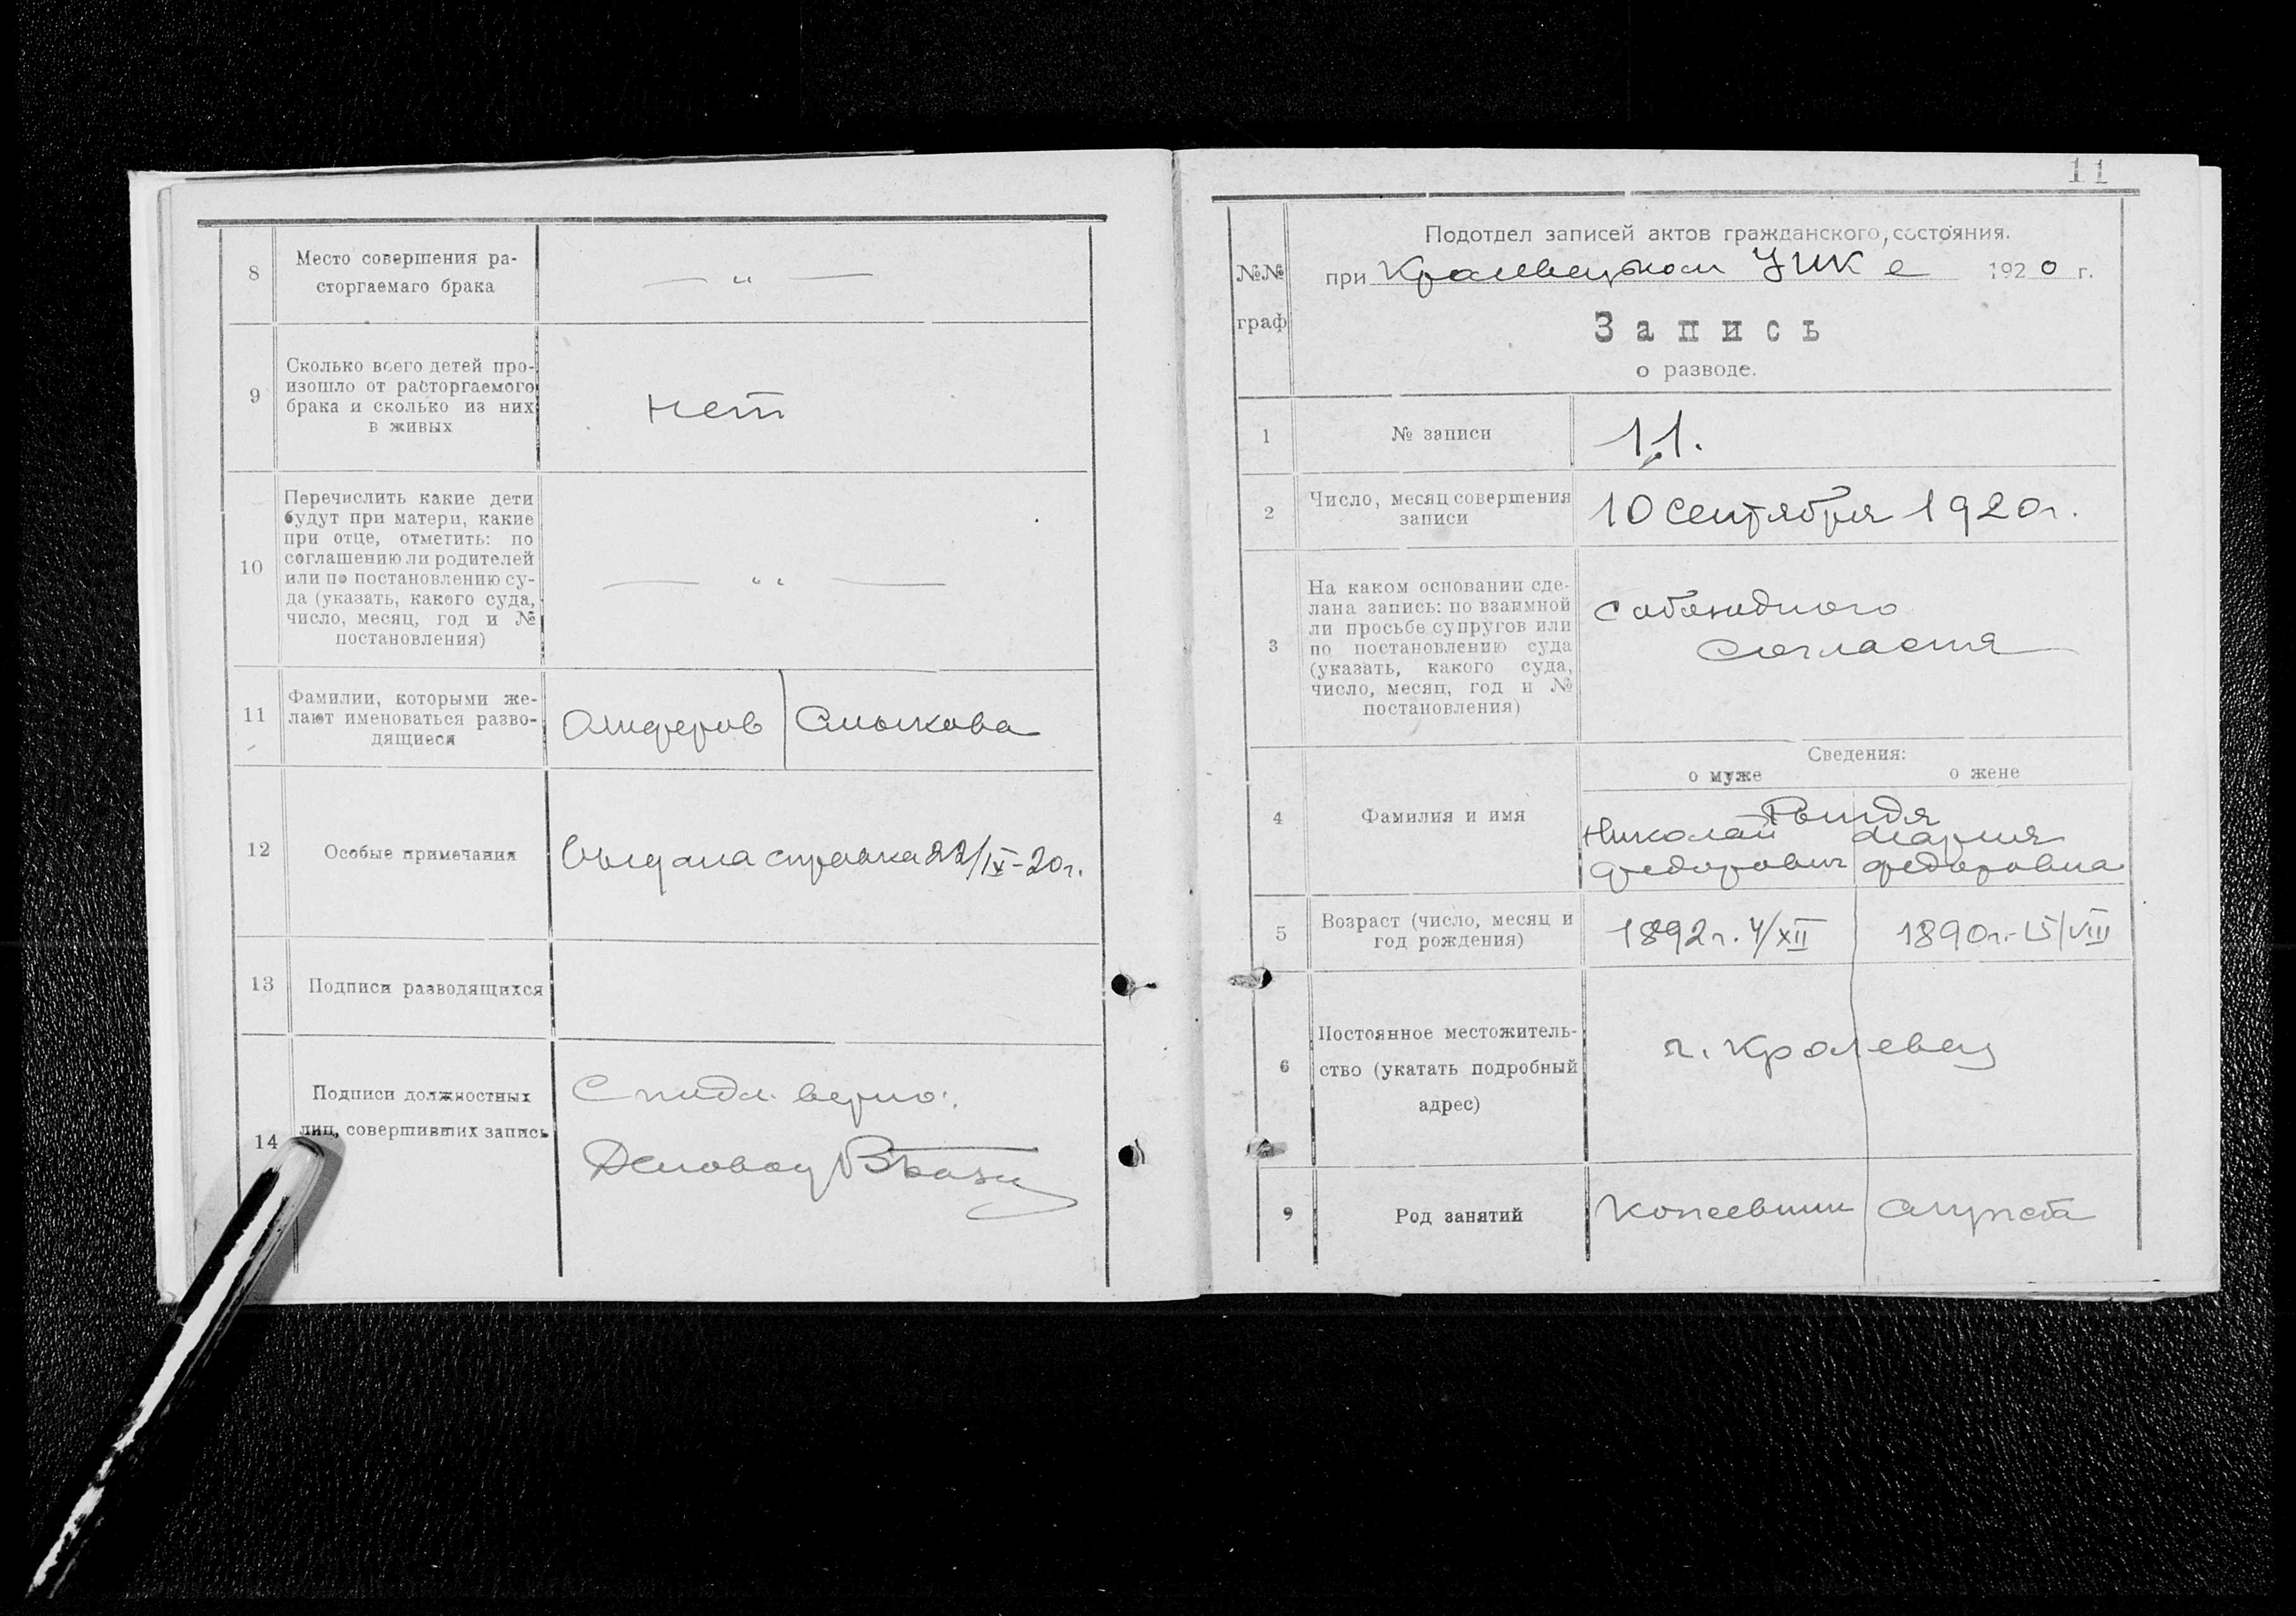 8
Место совершения ра-
сторгаемаго брака
— " —
9
Сколько всего детей про-
изошло от расторгаемого
брака и сколько из них
в живых
нет
10
Перечислить какие дети
будут при матери, какие
при отце, отметить: по
соглашению ли родителей
или по постановлению су-
да (указать, какого суда,
число, месяц, год и №
постановления)
— " —
11
Фамилии, которыми же-
лают именоваться разво-
дящиеся
Смыкова
12
Особые примечания
Выдана справка 22/IX-20г.
13
Подписи разводящихся
14
Подписи должностных
лиц, совершивших запись
С подл. верно:
11
№№
граф
Подотдел записей актов гражданского, состояния.
при Кролевецком УИК е 1920 г.
Запись
о разводе.
1
№ записи
11.
2
Число, месяц совершения
записи
10 сентября 1920г.
3
На каком основании сде-
лана запись: по взаимной
ли просьбе супругов или
по постановлению суда
(указать, какого суда,
число, месяц, год и №
постановления)
с обоюдного
согласия
Сведения:
о муже о жене
4
Фамилия и имя
Рындя
Николай Мария
Федорович Федоровна
5
Возраст (число, месяц и
год рождения)
1892г. 4/XII 1890г.-15/VIII
6
Постоянное местожитель-
ство (укатать подробный
адрес)
г. Кролевец
9
Род занятий
служба